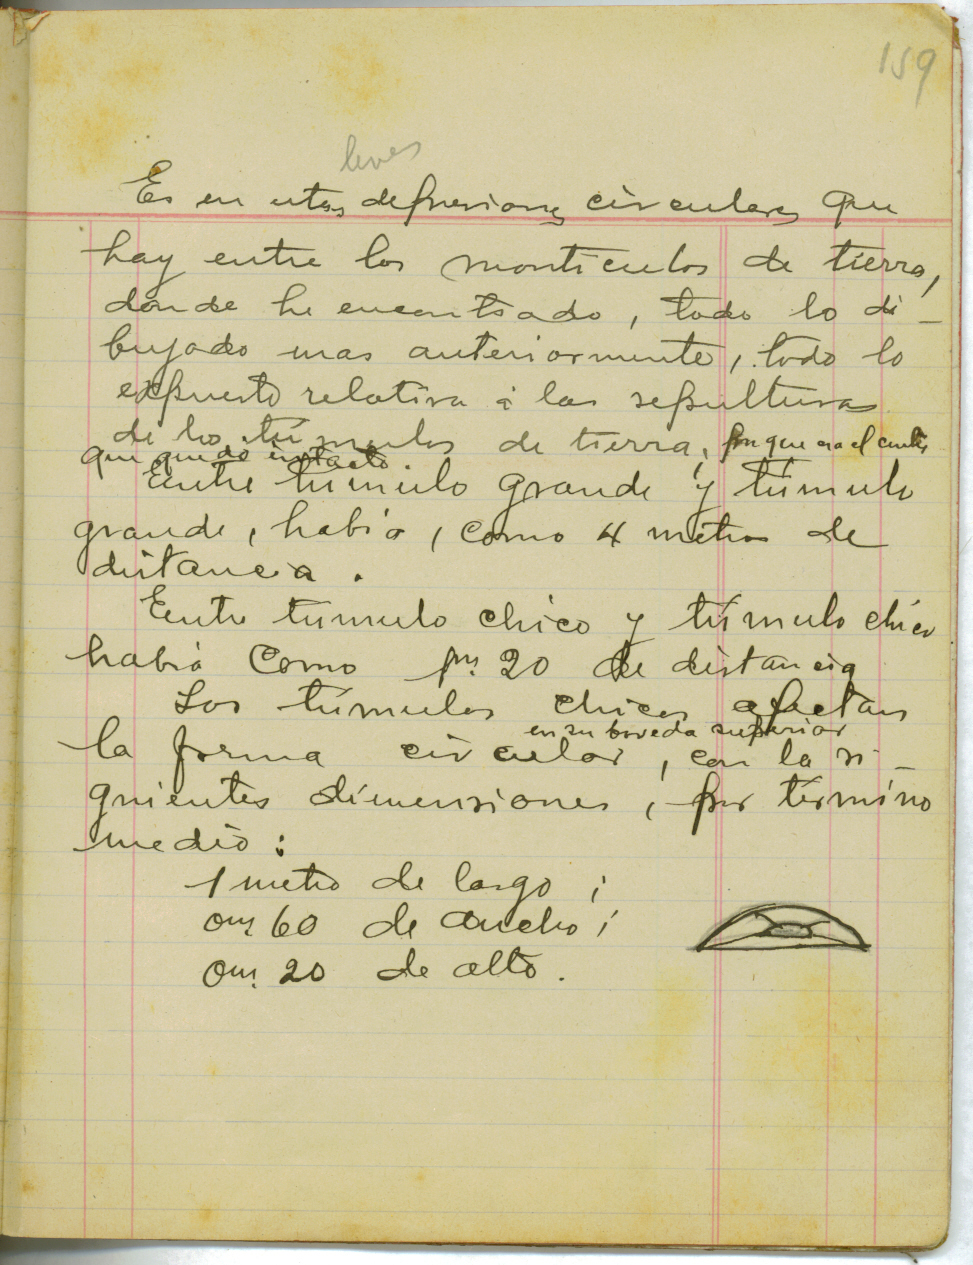 159
leves
Es en estas depresiones circulares que
hay entre los monticulos de tierra,
donde he encontrado, todo lo di-
bujado mas anteriormente, todo lo
expuesto relativa á las sepulturas
de los túmulos de tierra, por que era el
que quedo intacto.
Entre túmulo grande y túmulo
grande, habia, como 4 metros de
distancia.
Entre túmulo chico y túmulo chico
habia como 1m. 20 de distancia
Los túmulos chicos afectan
en su boveda superior
la forma circular, con la si-
guientes dimensiones, por término
medio:
1 metro de largo;
0m. 60 de ancho;
0m. 20 de alto.